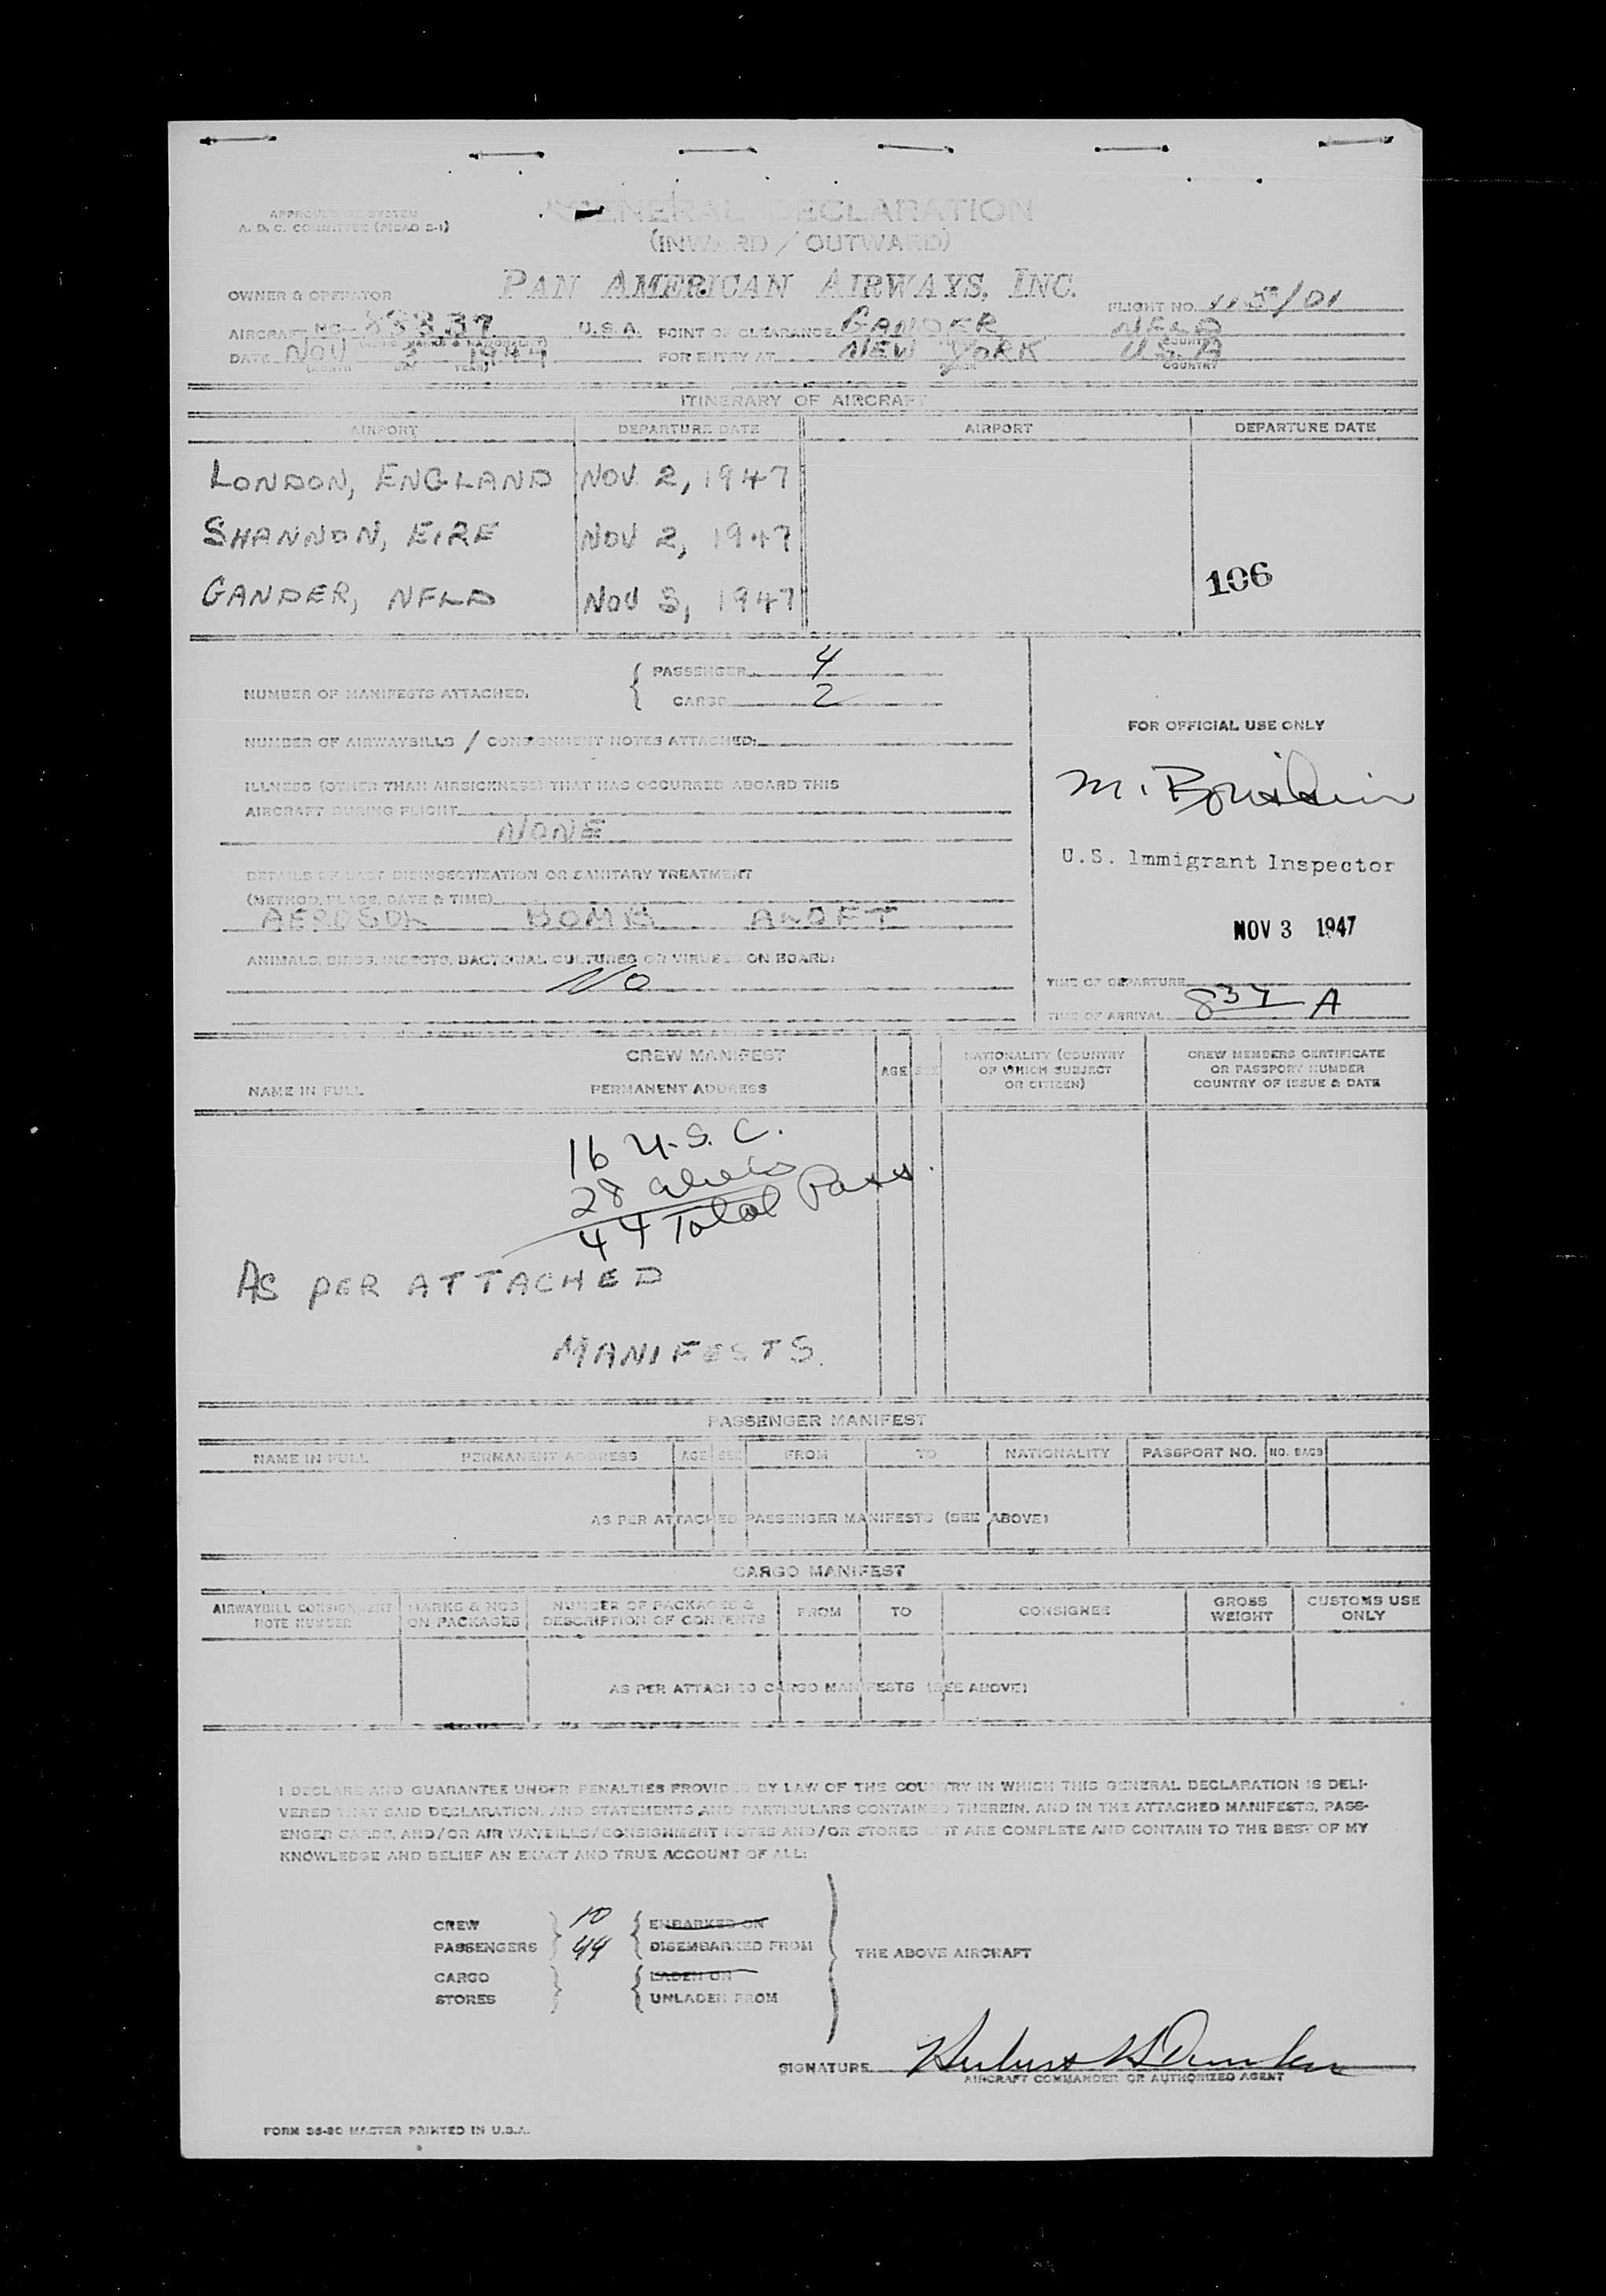 APPROVED BY SYSTEM
A. D. C. COMMITTEE (PICAO S-1)
GENERAL DECLARATION
(INWARD / OUTWARD)
OWNER & OPERATOR PAN AMERICAN AIRWAYS, INC.
FLIGHT NO. 115/01
AIRCRAFT NO. 88837 U.S.A. POINT OF CLEARANCE GANDER NFLD
(MARKS & NATIONALITY) COUNTRY
DATE NOV 3 1947 FOR ENTRY AT NEW YORK U.S.A
(MONTH DAY YEAR) PLACE COUNTRY
ITINERARY OF AIRCRAFT
AIRPORT DEPARTURE DATE AIRPORT DEPARTURE DATE
LONDON, ENGLAND NOV. 2, 1947
SHANNON, EIRE NOV 2, 1947
GANDER, NFLD NOV 3, 1947
106
NUMBER OF MANIFESTS ATTACHED. { PASSENGER 4
CARGO 2
NUMBER OF AIRWAYBILLS / CONSIGNMENT NOTES ATTACHED:
ILLNESS (OTHER THAN AIRSICKNESS) THAT HAS OCCURRED ABOARD THIS
AIRCRAFT DURING FLIGHT
NONE
DETAILS OF LAST DISINSECTIZATION OR SANITARY TREATMENT
(METHOD, PLACE, DATE & TIME)
AEROSOL BOMB ALOFT
ANIMALS, BIRDS, INSECTS, BACTERIAL CULTURES OR VIRUSES ON BOARD:
NO
FOR OFFICIAL USE ONLY
U.S. Immigrant Inspector
NOV 3 1947
TIME OF DEPARTURE
TIME OF ARRIVAL 837 A
CREW MANIFEST
NAME IN FULL PERMANENT ADDRESS AGE SEX NATIONALITY (COUNTRY OF WHICH SUBJECT OR CITIZEN) CREW MEMBERS CERTIFICATE OR PASSPORT NUMBER COUNTRY OF ISSUE & DATE
16 U.S.C.
28 aliens
44 Total Pass.
AS PER ATTACHED
MANIFESTS.
PASSENGER MANIFEST
NAME IN FULL PERMANENT ADDRESS AGE SEX FROM TO NATIONALITY PASSPORT NO. NO. BAGS
AS PER ATTACHED PASSENGER MANIFESTS (SEE ABOVE)
CARGO MANIFEST
AIRWAYBILL CONSIGNMENT NOTE NUMBER MARKS & NOS ON PACKAGES NUMBER OF PACKAGES & DESCRIPTION OF CONTENTS FROM TO CONSIGNEE GROSS WEIGHT CUSTOMS USE ONLY
AS PER ATTACHED CARGO MANIFESTS (SEE ABOVE)
I DECLARE AND GUARANTEE UNDER PENALTIES PROVIDED BY LAW OF THE COUNTRY IN WHICH THIS GENERAL DECLARATION IS DELI-
VERED THAT SAID DECLARATION, AND STATEMENTS AND PARTICULARS CONTAINED THEREIN, AND IN THE ATTACHED MANIFESTS, PASS-
ENGER CARDS, AND/OR AIR WAYBILLS/CONSIGNMENT NOTES AND/OR STORES LIST ARE COMPLETE AND CONTAIN TO THE BEST OF MY
KNOWLEDGE AND BELIEF AN EXACT AND TRUE ACCOUNT OF ALL:
CREW 10 EMBARKED ON
PASSENGERS 44 DISEMBARKED FROM THE ABOVE AIRCRAFT
CARGO LADEN ON
STORES UNLADEN FROM
SIGNATURE
AIRCRAFT COMMANDER OR AUTHORIZED AGENT
FORM 36-90 MASTER PRINTED IN U.S.A.